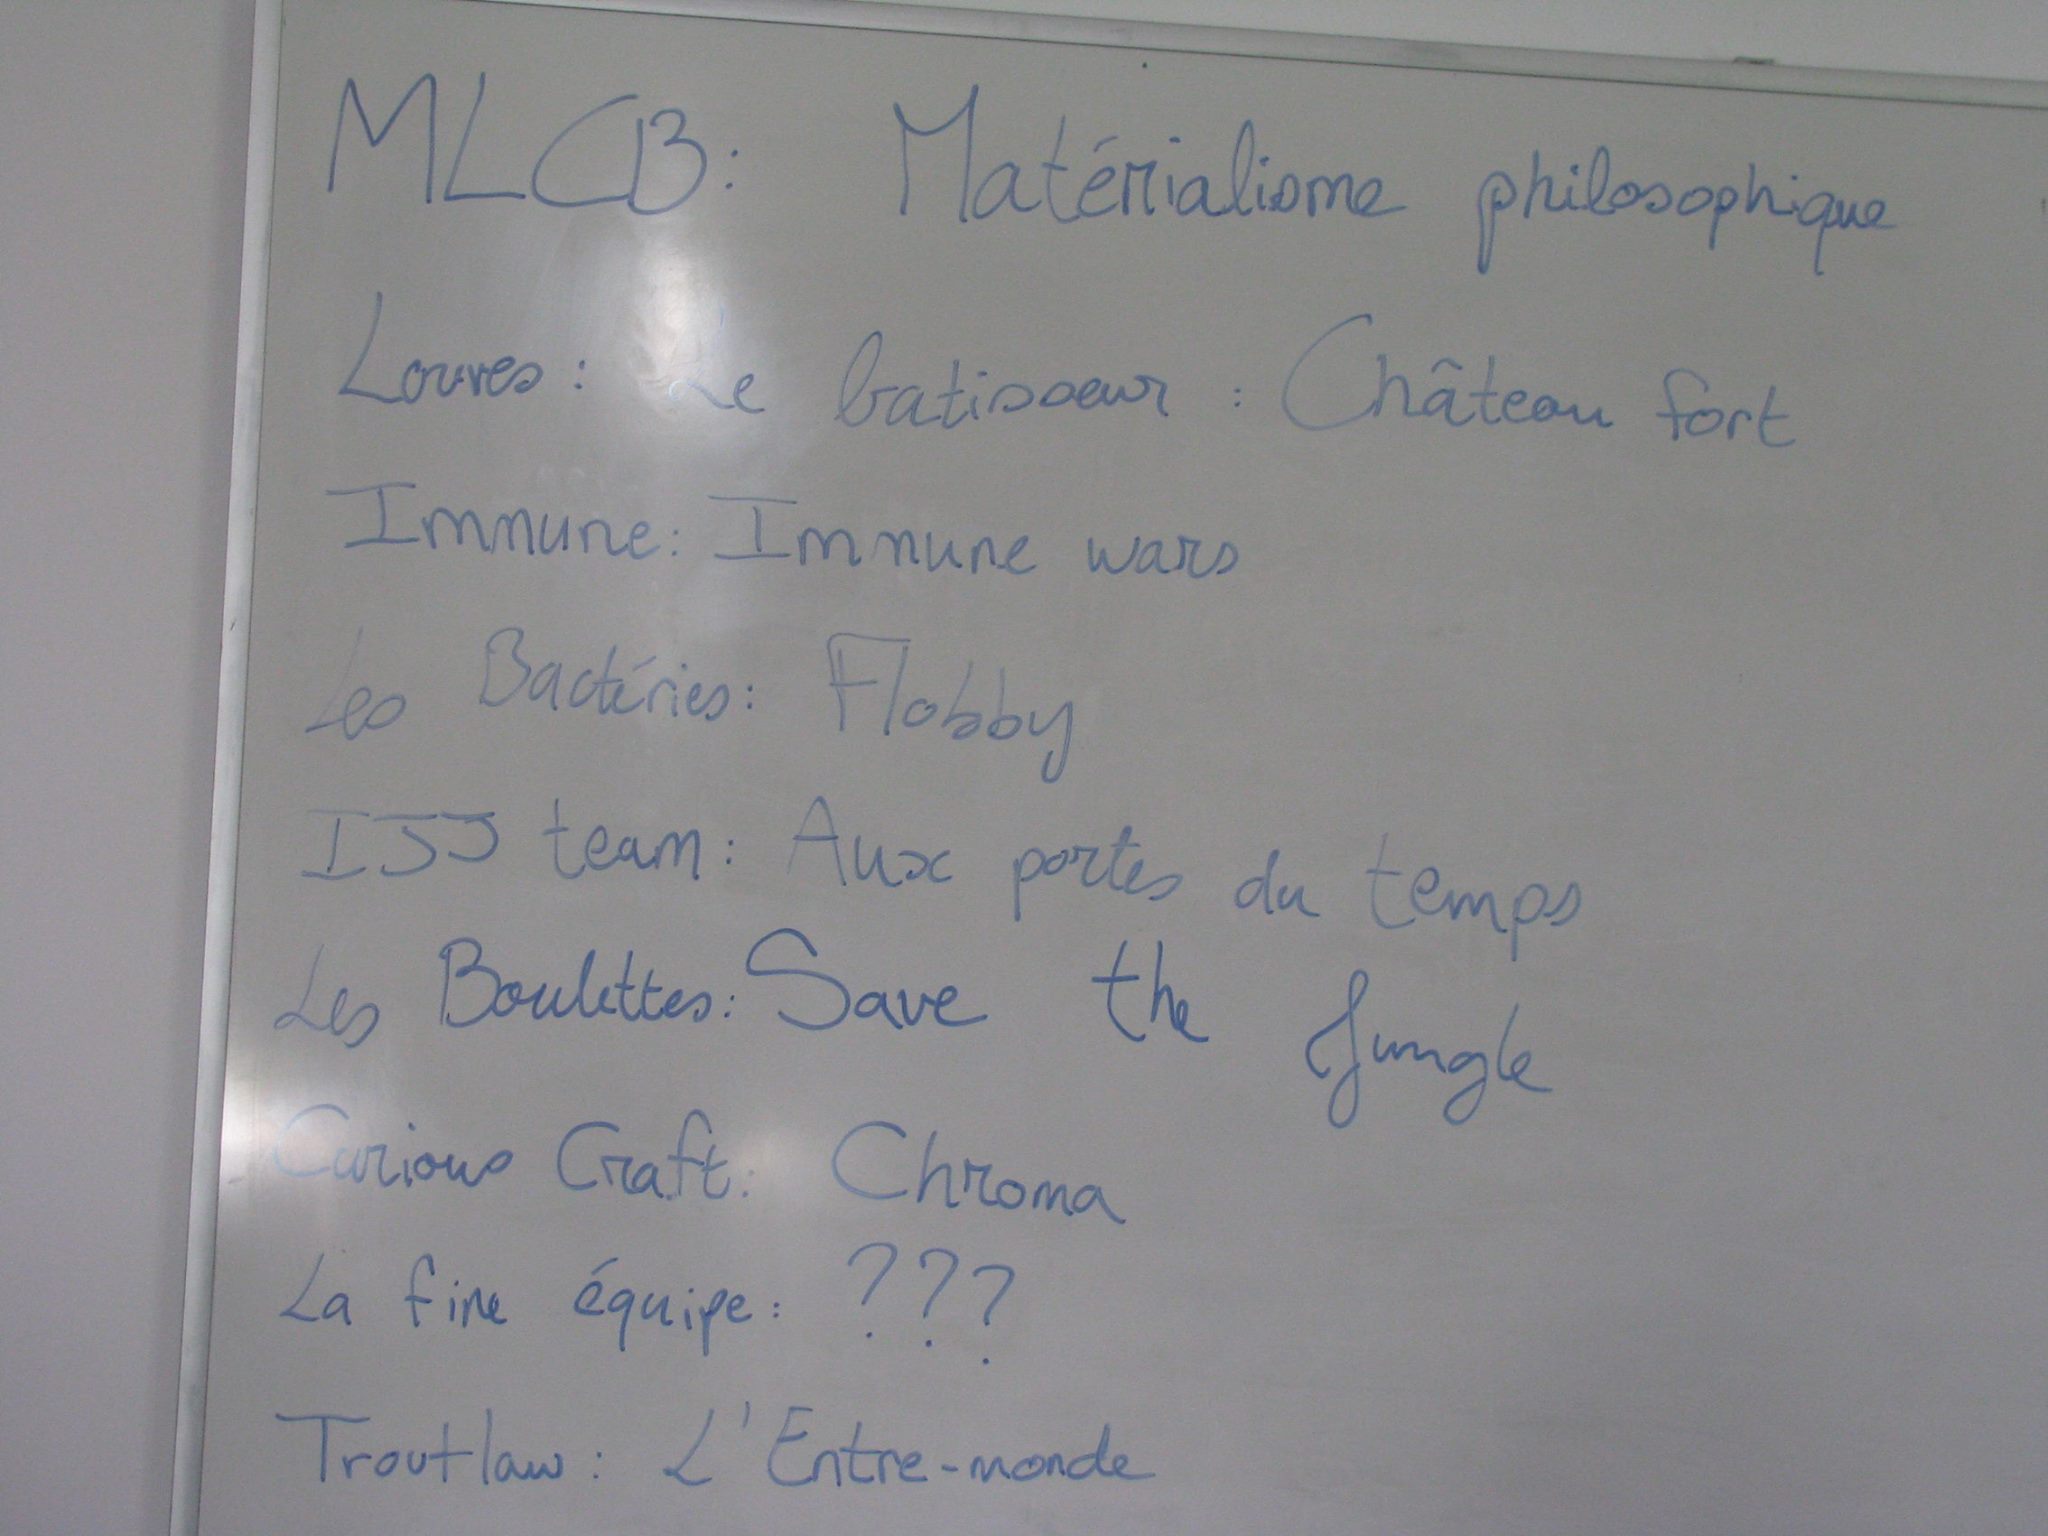 MLCB: Matérialisme philosophique
Louves: Le batisseur : Château fort
Immune: Immune wars
Les Bactéries: Flobby
IJJ team: Aux portes du temps
Les Boulettes: Save the Jungle
Curious Craft: Chroma
La fine équipe: ???
Troutlaw: L'Entre-monde